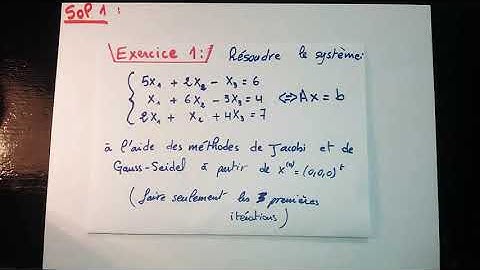 SoP 1 :
Exercice 1:/ Résoudre le système:
5x₁ + 2x₂ - x₃ = 6
x₁ + 6x₂ - 3x₃ = 4 <=> Ax = b
2x₁ + x₂ + 4x₃ = 7
à l'aide des méthodes de Jacobi et de
Gauss-Seidel à partir de x⁽⁰⁾ = (0,0,0)ᵗ
(faire seulement les 3 premières
itérations)